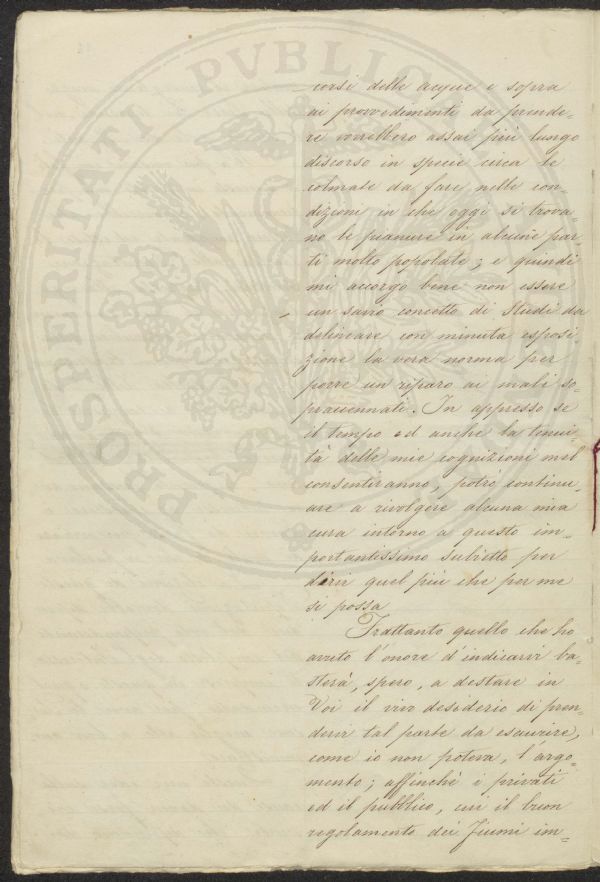 corsi delle acque e sopra
ai provvedimenti da prende-
re vorrebbero assai più lungo
discorso in specie circa le
colmate da fare nelle con-
dizioni in che oggi si trova-
no le pianure in alcune par-
ti molto popolate; e quindi
mi accorgo bene non essere
un savio concetto di Studi da
delineare con minuta esposi-
zione la vera norma per
porre un riparo ai mali so-
praccennati. In appresso se
il tempo ed anche la tenui-
tà delle mie cognizioni mel
consentiranno, potrò continu-
are a rivolgere alcuna mia
cura intorno a questo im-
portantissimo subietto per
dirvi quel più che per me
si possa
Frattanto quello che ho
avuto l'onore d'indicarvi ba-
sterà, spero, a destare in
Voi il vivo desiderio di pren-
dervi tal parte da esaurire,
come io non poteva, l'argo-
mento; affinchè i privati
ed il pubblico, cui il buon
regolamento dei fiumi im-
PROSPERITATI PVBLIC